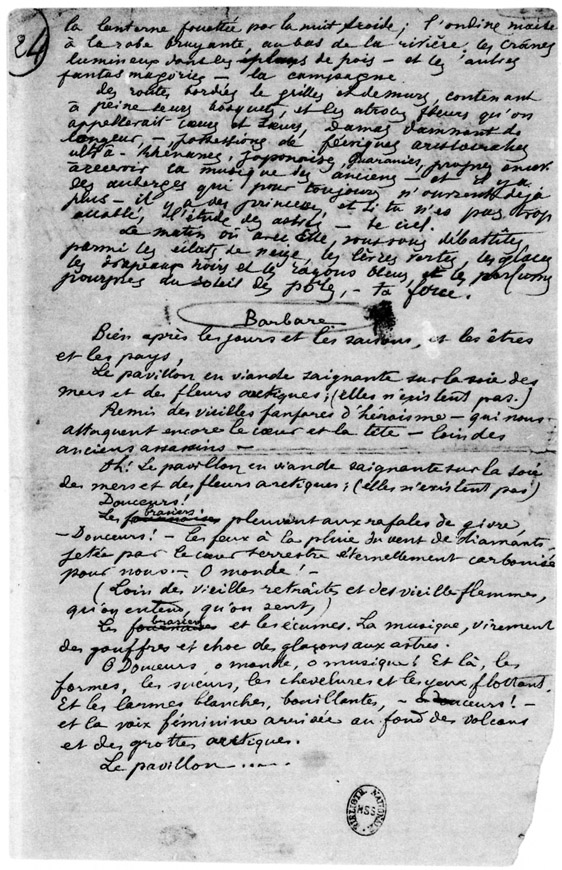 24
la lanterne fouettée par la nuit froide ; l'ondine niaise
à la robe bruyante, au bas de la rivière, les crânes
lumineux dans les plans de pois — et les autres
fantasmagories — la campagne.
Des routes bordées de grilles et de murs, contenant
à peine leurs bosquets, et les atroces fleurs qu'on
appellerait cœurs et sœurs, Damas damnant de
langueur, — possessions de féeriques aristocrates
ultra-Rhénanes, Japonaises, Guaranies, propres encore
à recevoir la musique des anciens — et il y a
des auberges qui pour toujours n'ouvrent déjà
plus — il y a des princesses, et si tu n'es pas trop
accablé, l'étude des astres — le ciel.
Le matin où avec Elle, vous vous débattîtes
parmi les éclats de neige, les lèvres vertes, les glaces
les drapeaux noirs et les rayons bleus, et les parfums
pourpres du soleil des pôles, — ta force.
Barbare
Bien après les jours et les saisons, et les êtres
et les pays,
Le pavillon en viande saignante sur la soie des
mers et des fleurs arctiques ; (elles n'existent pas.)
Remis des vieilles fanfares d'héroïsme — qui nous
attaquent encore le cœur et la tête — loin des
anciens assassins —
Oh ! Le pavillon en viande saignante sur la soie
des mers et des fleurs arctiques ; (elles n'existent pas)
Douceurs !
brasiers
Les fournaises pleuvant aux rafales de givre,
— Douceurs ! — les feux à la pluie du vent de diamants
jetée par le cœur terrestre éternellement carbonisé
pour nous. — O monde ! —
(Loin des vieilles retraites et des vieilles flammes,
qu'on entend, qu'on sent,)
brasiers
Les fournaises et les écumes. La musique, virement
des gouffres et choc des glaçons aux astres.
O Douceurs, o monde, o musique ! Et là, les
formes, les sueurs, les chevelures et les yeux, flottant.
Et les larmes blanches, bouillantes, — o douceurs ! —
et la voix féminine arrivée au fond des volcans
et des grottes arctiques.
Le pavillon.......
BIBLIOTH. NATIONALE
MSS